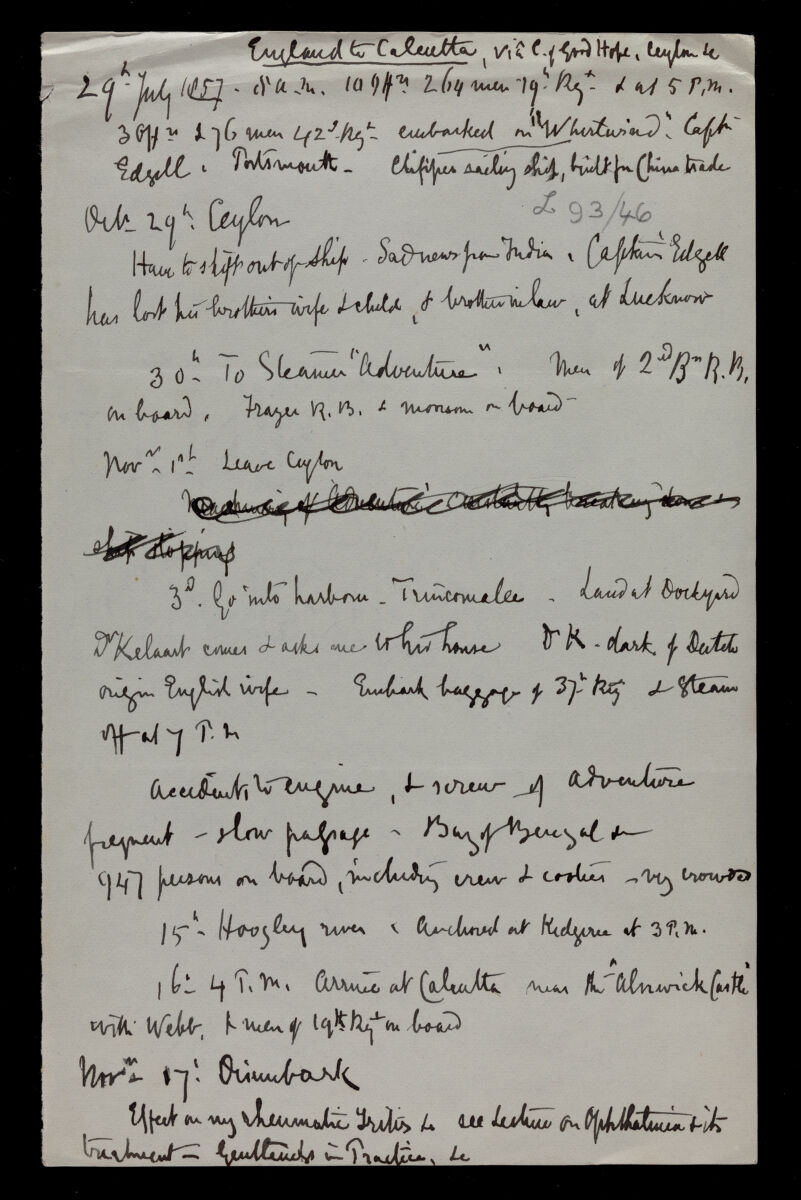 England to Calcutta, via C. of Good Hope, Ceylon &c
29th July 1857 - 8 a.m. 10 Offrs 264 men 19th Regt & at 5 P.m.
3 Offrs & 76 men 42d Regt embarked on "Whirlwind" Captn
Edgell, Portsmouth - Clipper sailing ship, built for China trade
L 93/46
Octr 29th Ceylon
Have to shift out of ship. Sad news from India, Captain Edgell
has lost his brothers wife & child, & brother in law, at Lucknow
30th To Steamer "Adventure". Men of 2nd Bn R.B.
on board. Frazer R.B. & on board
Novr 1st Leave Ceylon
Machinery of Adventure constantly breaking down
stopping
3d. Go into harbour - Trincomalee - Land at Dockyard
Dr Kelaart comes & asks me to his house Dr K - dark, of Dutch
origin English wife - Embark baggage of 37th Regt & Steam
off at 7 P.m
Accidents to engine, & screw of Adventure
frequent - slow passage - Bay of Bengal &c
947 persons on board, including crew & coolies - very crowded
15th Hoogley river, Anchored at Kedgeree at 3 P.m.
16th 4 P.m. Arrive at Calcutta near the "Alnwick Castle"
with Webb, & men of 19th Regt on board
Novr 17th Disembark
Effect on my rheumatic Iritis &c see Lecture on Ophthalmia & its
treatment - in Practice, &c